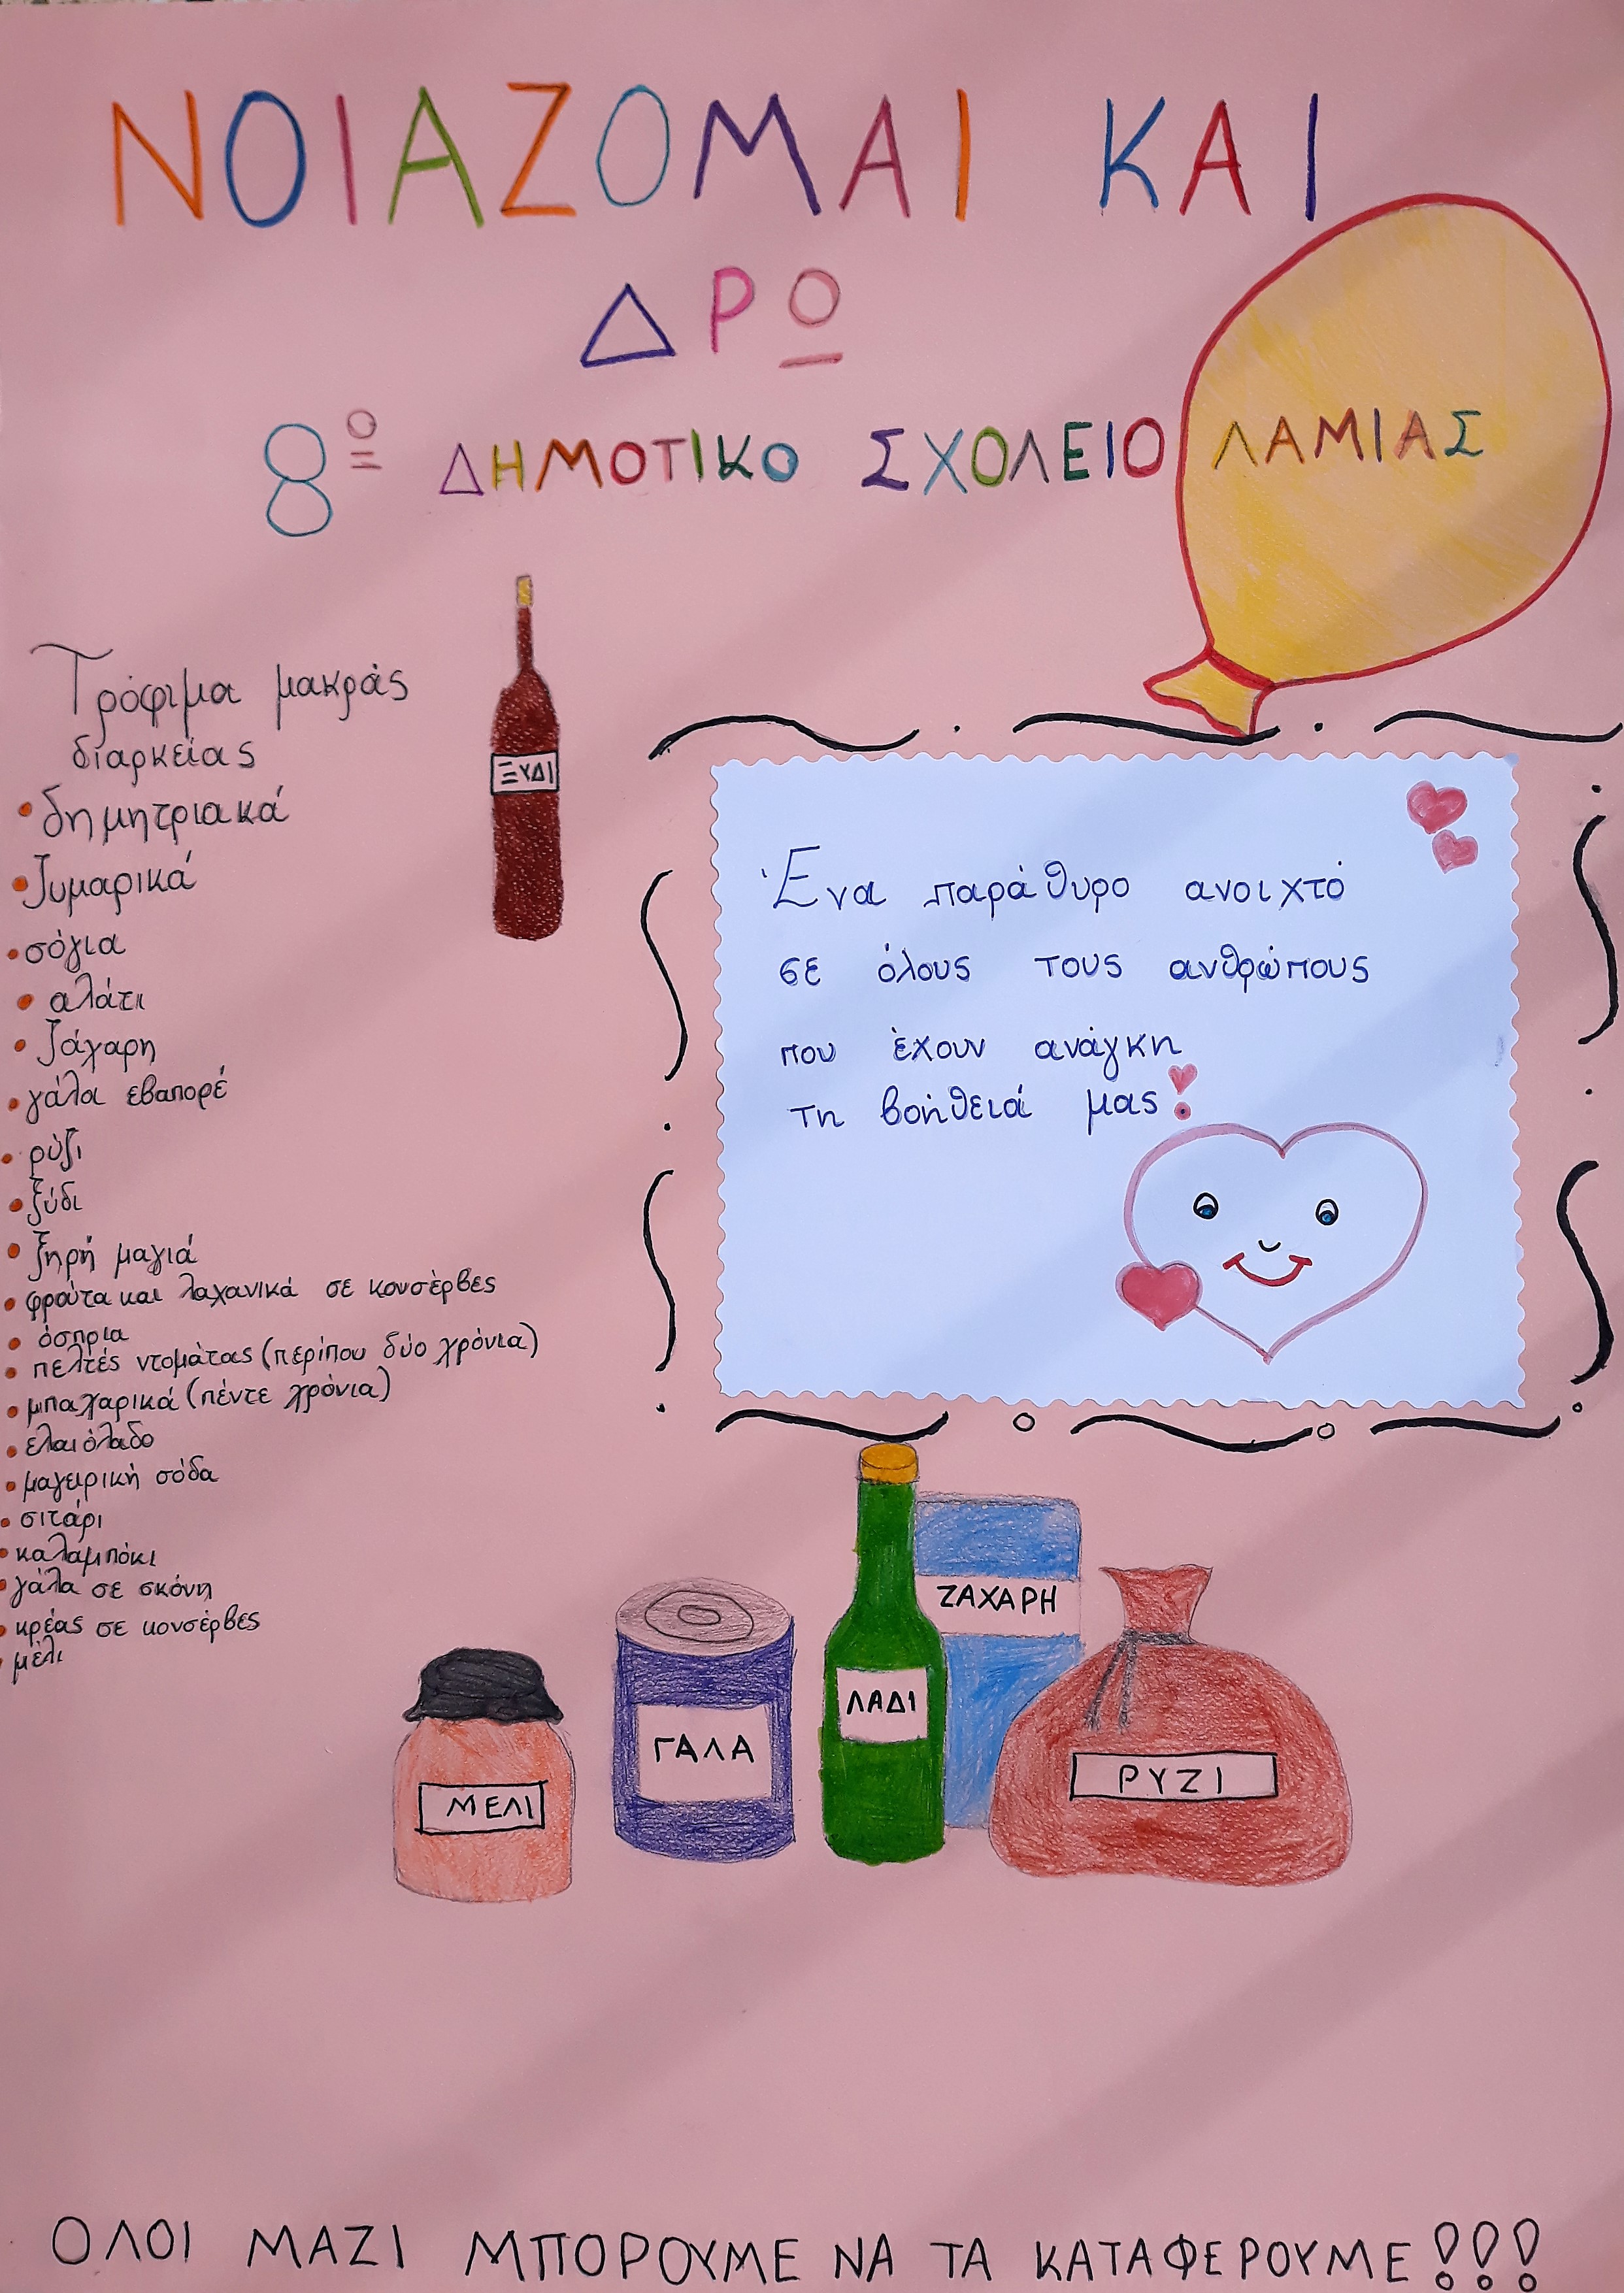 ΝΟΙΑΖΟΜΑΙ ΚΑΙ
ΔΡΩ
8ο ΔΗΜΟΤΙΚΟ ΣΧΟΛΕΙΟ ΛΑΜΙΑΣ
Τρόφιμα μακράς
διαρκείας
• δημητριακά
• ζυμαρικά
• σόγια
• αλάτι
• ζάχαρη
• γάλα εβαπορέ
• ρύζι
• ξύδι
• ξηρή μαγιά
• φρούτα και λαχανικά σε κονσέρβες
• όσπρια
• πελτές ντομάτας (περίπου δύο χρόνια)
• μπαχαρικά (πέντε χρόνια)
• ελαιόλαδο
• μαγειρική σόδα
• σιτάρι
• καλαμπόκι
• γάλα σε σκόνη
• κρέας σε κονσέρβες
• μέλι
ΞΥΔΙ
Ένα παράθυρο ανοιχτό
σε όλους τους ανθρώπους
που έχουν ανάγκη
τη βοήθειά μας!
ΜΕΛΙ
ΓΑΛΑ
ΛΑΔΙ
ΖΑΧΑΡΗ
ΡΥΖΙ
ΟΛΟΙ ΜΑΖΙ ΜΠΟΡΟΥΜΕ ΝΑ ΤΑ ΚΑΤΑΦΕΡΟΥΜΕ!!!